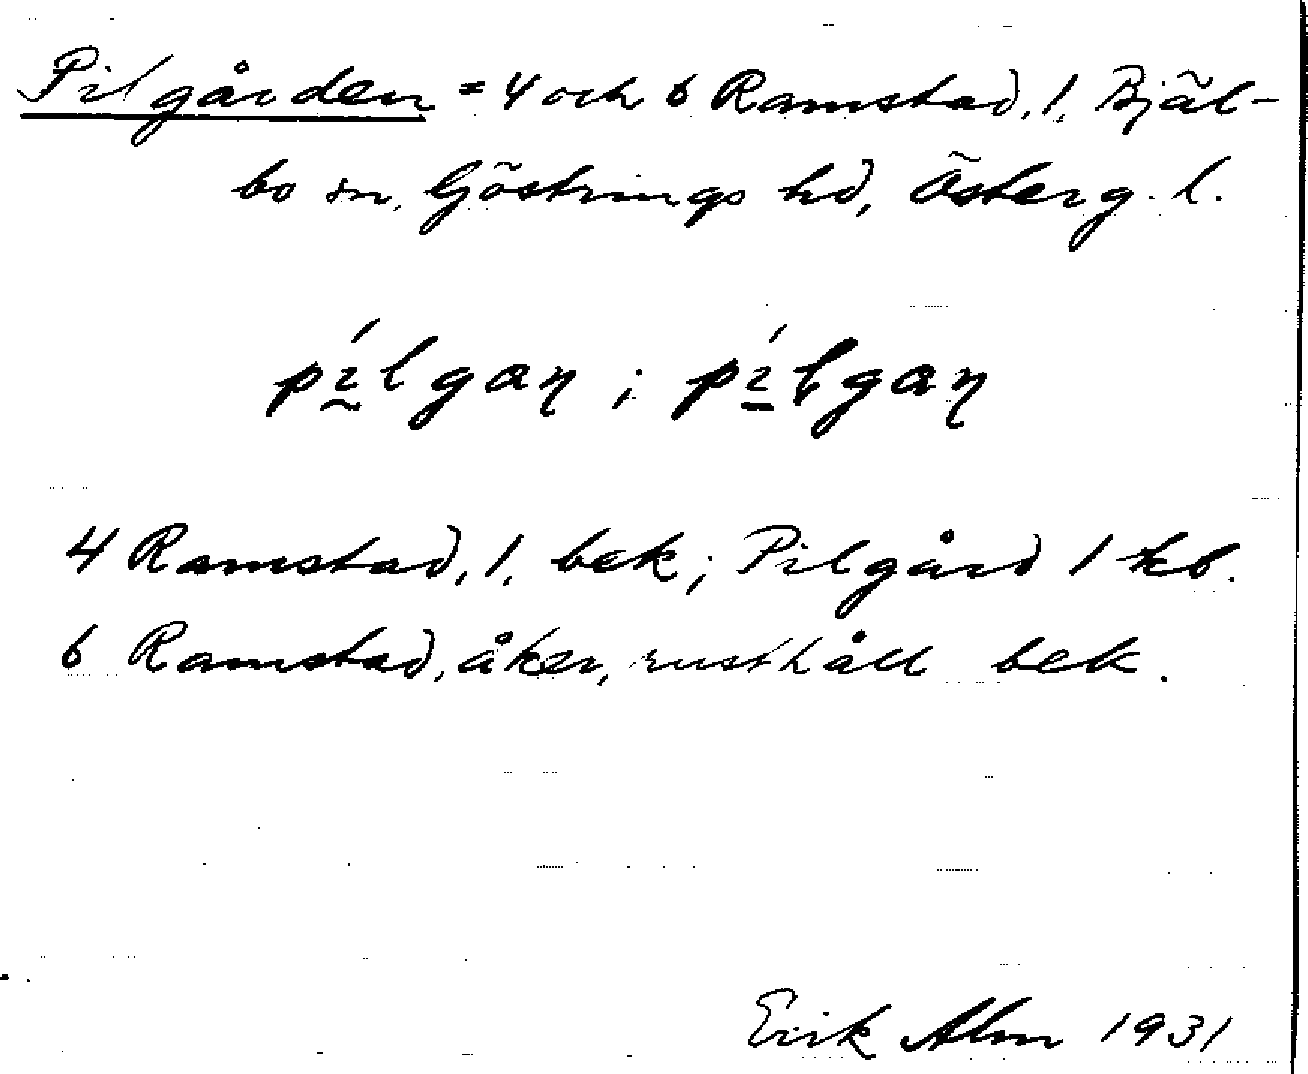 Pilgården = 4 och 6 Ramstad, 1, Bjäl-
bo sn, Göstrings hd, Österg. l.
pílgaɳ ; pílgaɳ
4 Ramstad, 1, bek; Pilgård 1 kb.
6 Ramstad, åker, rusthåll bek.
Erik Alm 1931